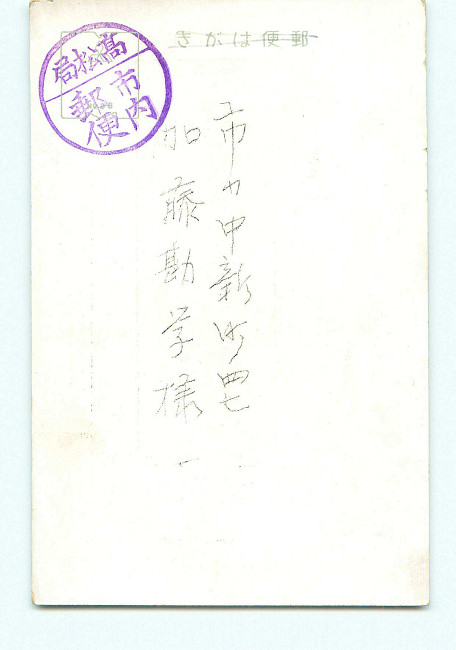 きがは便郵
高松局
市内
郵便
市内中新町四七
加藤勘学様